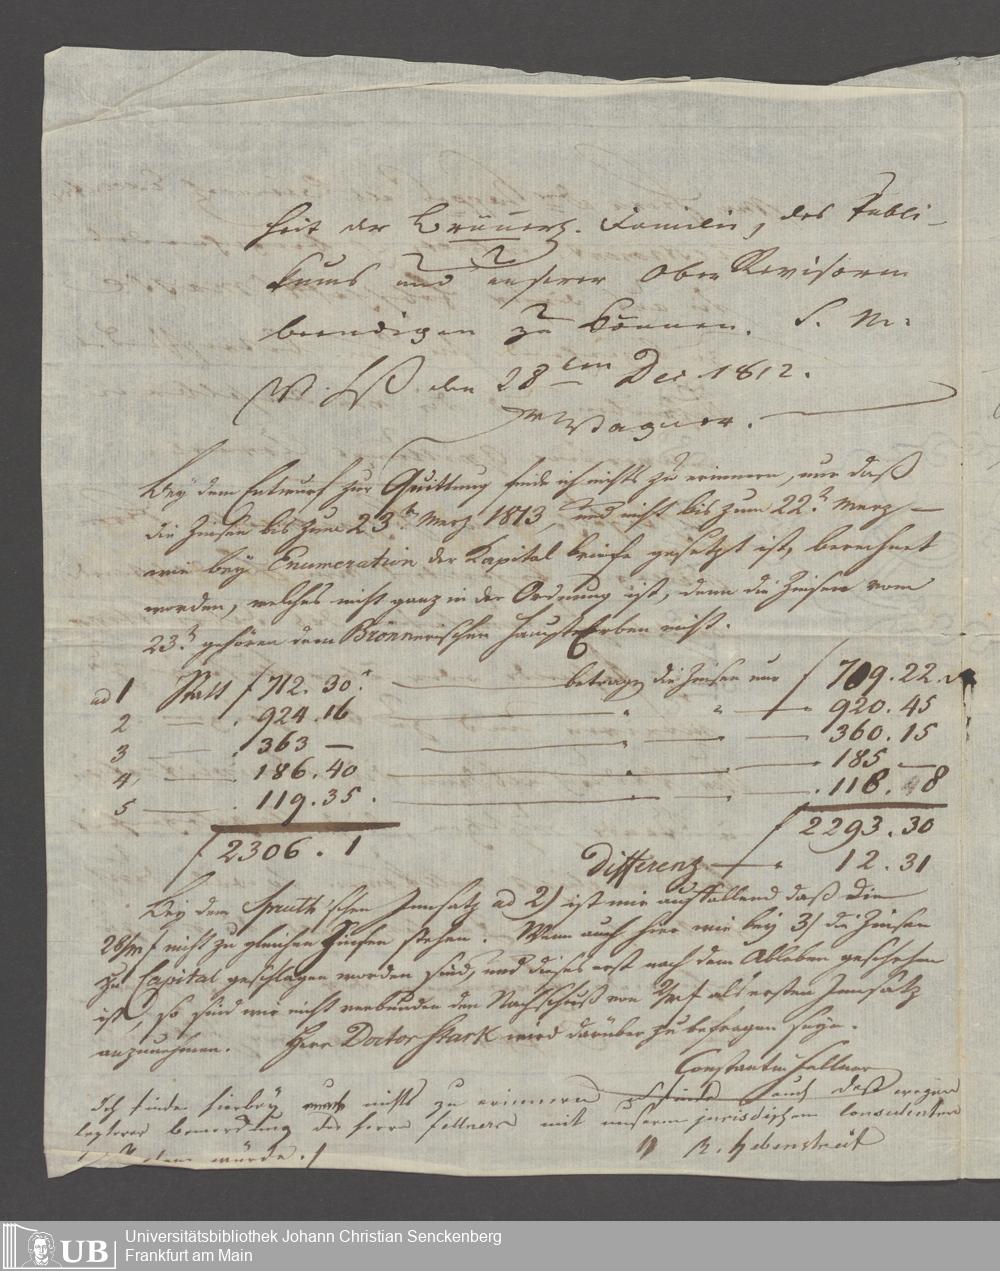 heit der Brönner. Familie, des Publi-
kums und unserer Ober Revisoren
beendigen zu können. S. M.
den 28ten Dec 1812.
Wagner.
Bey dem Entwurf zur Quittung finde ich nichts zu erinnern, nur daß
die Zinsen bis zum 23t. Merz 1813, und nicht bis zum 22t. Merz –
wie bey Enumeration der Kapital briefe gesetzt ist, berechnet
worden, welches nicht ganz in der Ordnung ist, denn die Zinsen vom
23t. gehören dem Brönnerischen Haupt Erben nicht.
ad 1 Statt f 712. 30. — betragen die Zinsen nur f 709. 22.
2 — . 924. 16 — " " — " 920. 45
3 — . 363 — — " " — 360. 15
4, — . 186. 40 — " " — 185 —
5 — . 119. 35. — " " — . 118. 8
f 2306. 1 f 2293. 30
Differenz — " 12. 31
Bey dem Spruth'schen Innsatz ad 2) ist mir auffallend daß die
28/m f nicht zu gleichen Zinsen stehen. Wenn auch hier wie bey 3/ die Zinsen
zu Capital geschlagen worden sind, und dieses erst nach dem Ableben geschehen
ist, so sind wir nicht verbunden den Nachschuß von als ersten Innsatz
anzunehmen. Herr Doctor Stark wird darüber zu befragen seyn.
Constantin Fellner
Ich finde hierbey nichts zu erinnern auch daß wegen
letzterer bemerkung des Herrn Fellners mit unserm juristischen Consulenten
würde. /
R. Hebenstreit
UB
Universitätsbibliothek Johann Christian Senckenberg
Frankfurt am Main